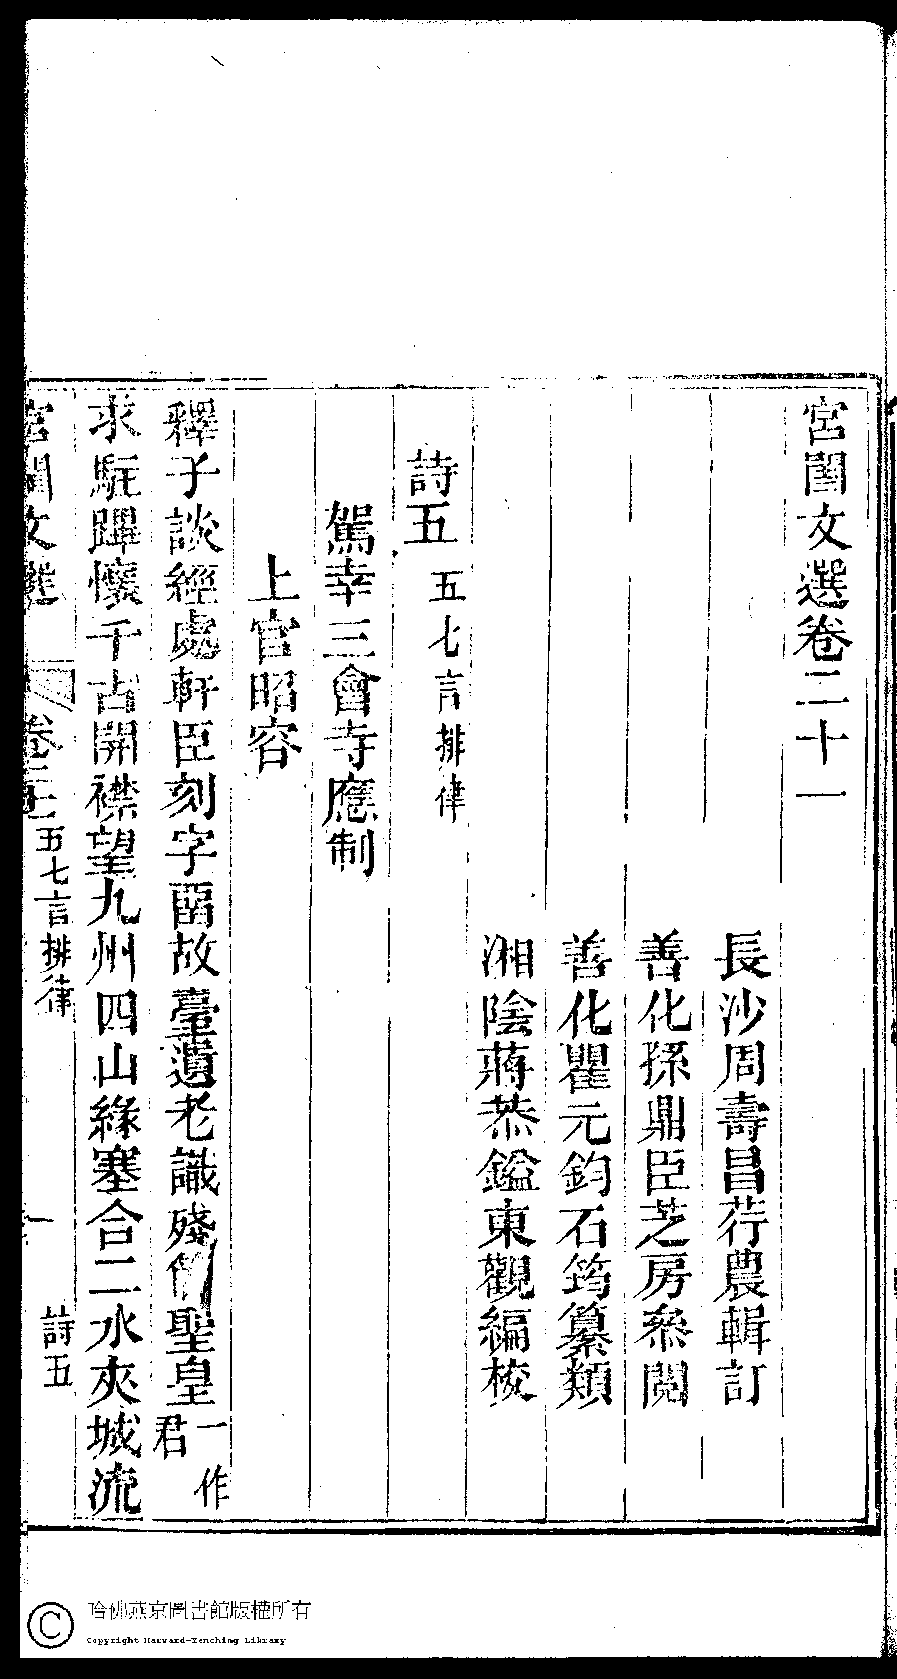 宮閨文選卷二十一
長沙周壽昌荇農輯訂
善化孫鼎臣芝房叅閱
善化瞿元鈞石筠纂類
湘陰蔣恭鎰東觀編校
詩五 五七言排律
駕幸三會寺應制
上官昭容
釋子談經處軒臣刻字畱故臺遺老識殘簡聖皇一作君
求駐蹕懷千古開襟望九州四山緣塞合二水夾城流
宮閨文選 卷二十一 五七言排律 一 詩五
哈佛燕京圖書館版權所有
Copyright Harvard-Yenching Library